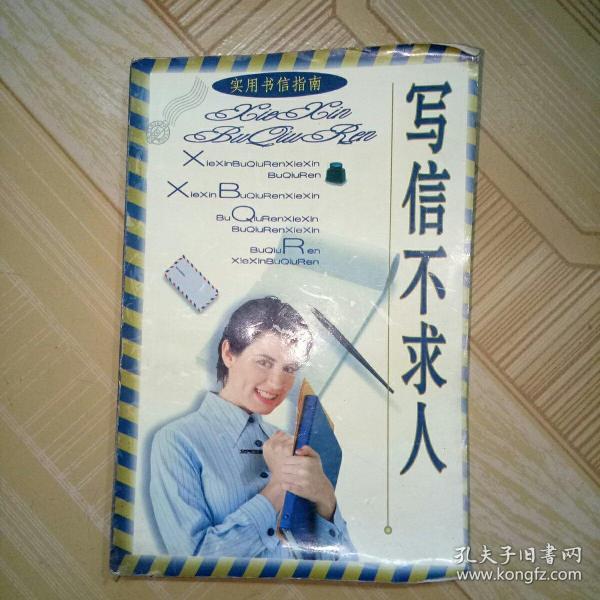 实用书信指南
XieXin
BuQiuRen
XieXinBuQiuRenXieXin
BuQiuRen
XieXinBuQiuRenXieXin
BuQiuRenXieXin
BuQiuRenXieXin
BuQiuRen
XieXinBuQiuRen
写信不求人
孔夫子旧書网
www.kongfz.com